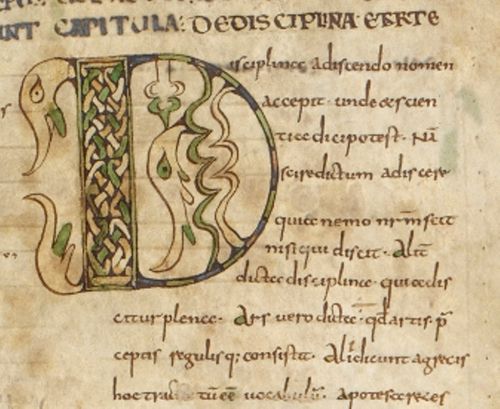 INT CAPITULA: DEDISCIPLINA ETARTE
Disciplina adiscendo nomen
accepit · unde &scien
tia dici potest · Nā
scire dictum adiscere
quia nemo nrm̄ scit
nisi qui discit · Alit̄
dicta disciplina · quia dis
citur plena · Ars vero dicta ē · qd̄ artis p̄
ceptis regulisq; consistit · Alii dicunt agrecis
hoc tūēē uocabulū · apotesaretes